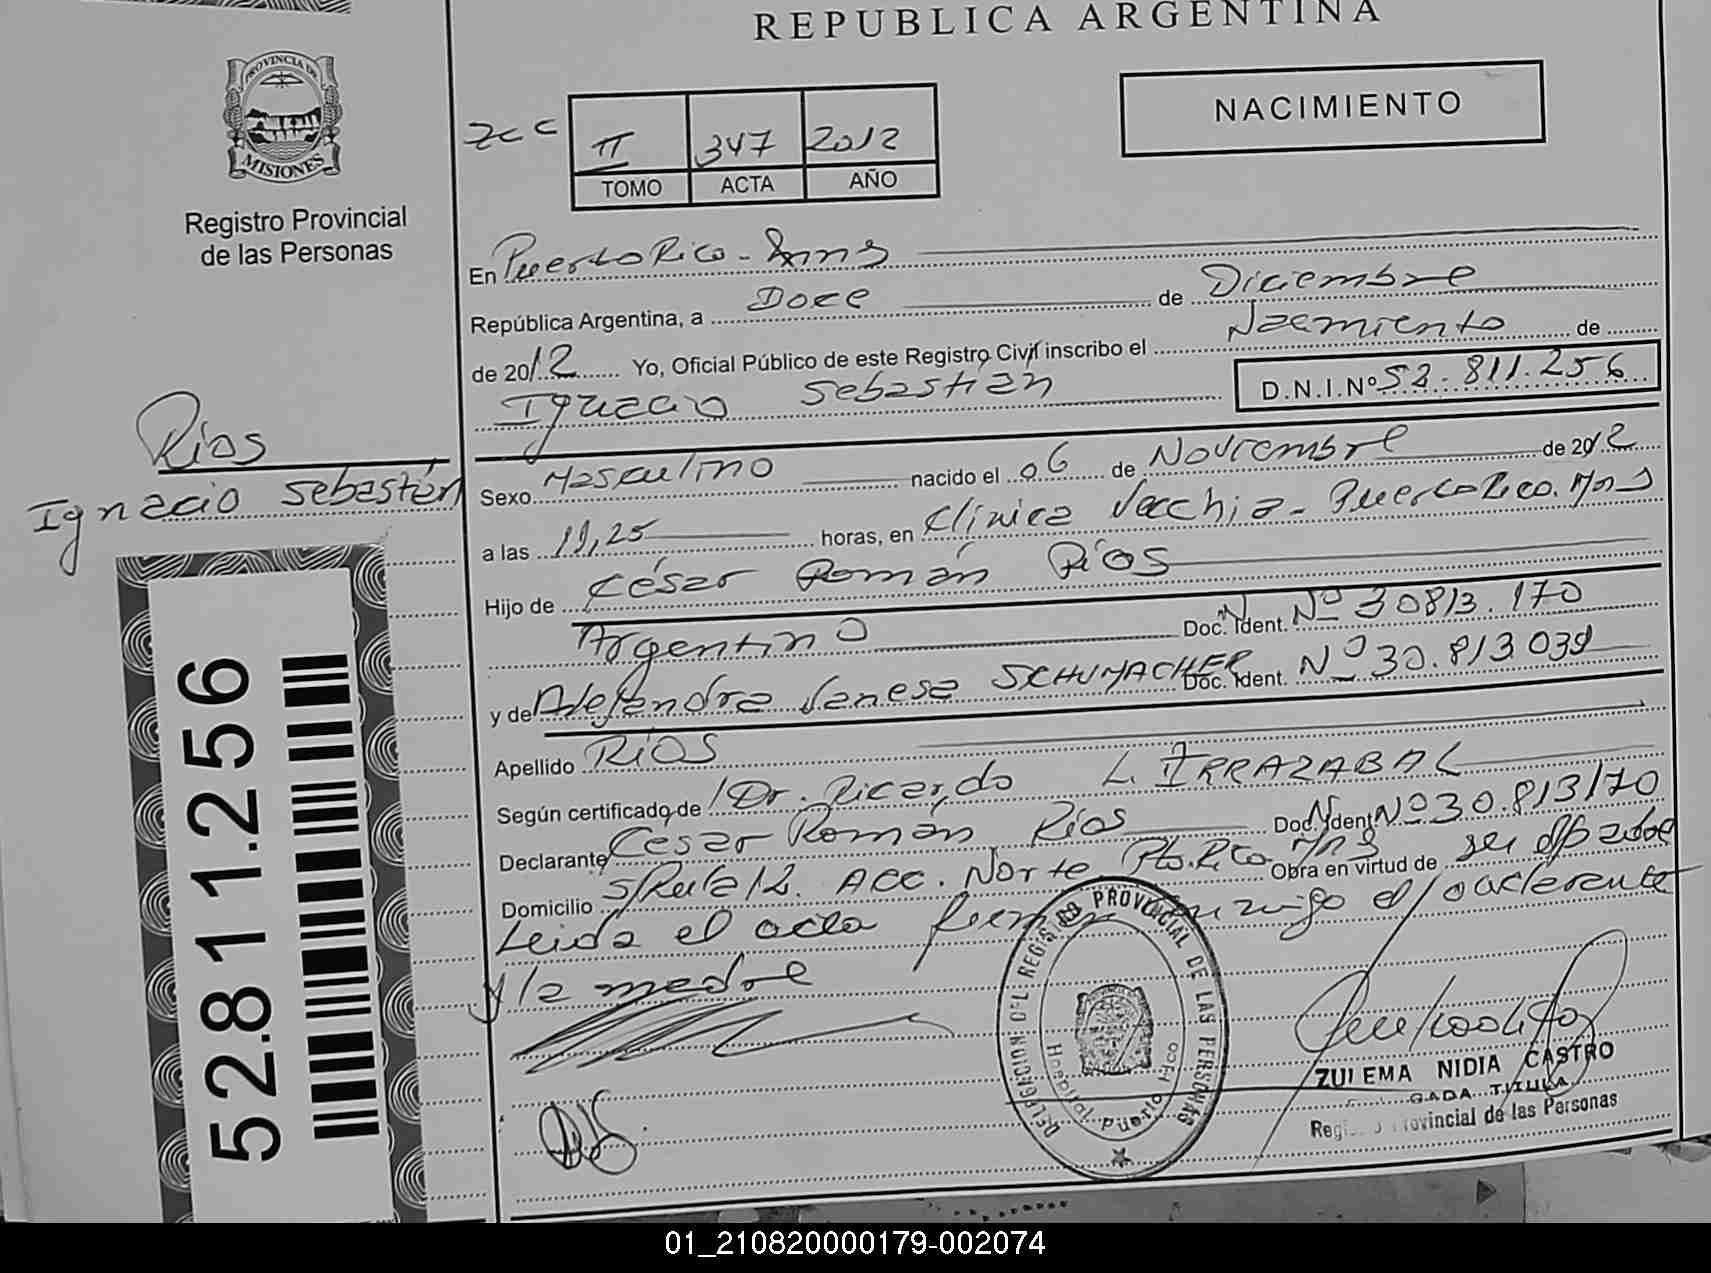 REPUBLICA ARGENTINA
PROVINCIA DE
MISIONES
Registro Provincial
de las Personas
NACIMIENTO
II 347 2012
TOMO ACTA AÑO
En Puerto Rico - Mns
República Argentina, a Doce de Diciembre
de 2012 Yo, Oficial Público de este Registro Civil inscribo el Nacimiento de
Ignacio Sebastián D.N.I.Nº 52.811.256
Ríos
Ignacio Sebastián
Sexo Masculino nacido el 06 de Noviembre de 2012
a las 11,25 horas, en Clínica Vecchia - Puerto Rico. Mns
Hijo de César Román Ríos
Argentino Doc. Ident. Nº 30813.170
y de Alejandra Vanesa SCHUMACHER Doc. Ident. Nº 30.813 039
Apellido Ríos
Según certificado de Dr. Ricardo L. IRRAZABAL
Declarante César Román Ríos Doc. Ident Nº 30.813170
Domicilio s/Ruta 12. Acc. Norte Pto. Rico Mns Obra en virtud de
Leída el acta conmigo el declarante
y la madre
52.811.256
DELEGACION DEL REGISTRO PROVINCIAL DE LAS PERSONAS
Hospital Puerto Rico
ZULEMA NIDIA CASTRO
Registro Provincial de las Personas
01_210820000179-002074